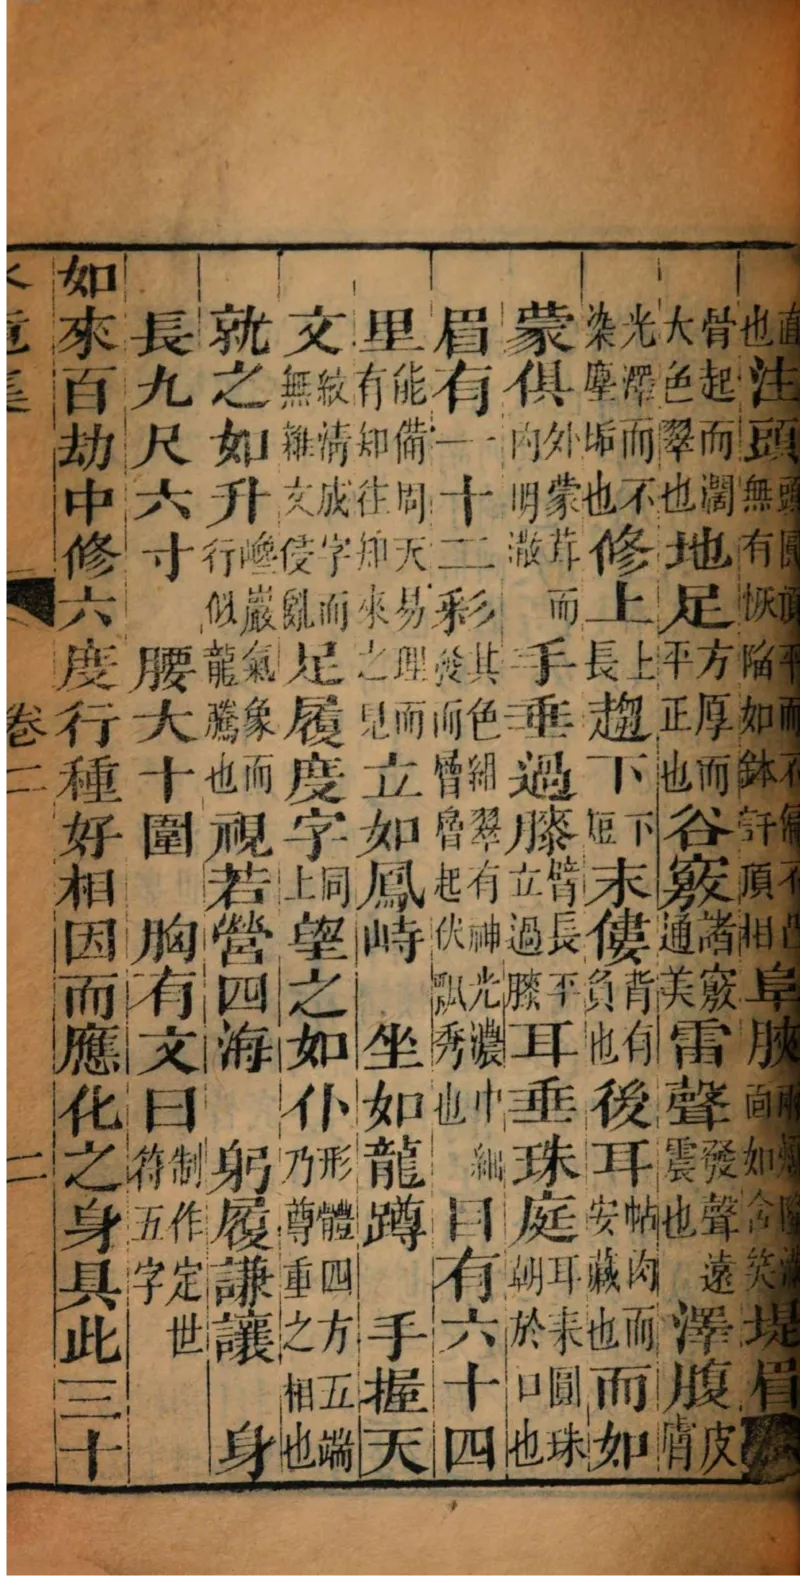 也注頭頭圓頂平而不偏不凸無有恢陷如鉢頂相阜面如含笑堤眉
骨起而濶大色翠也地足方厚而平正也谷竅諸竅通美雷聲發聲遠震也澤腹皮膚
光澤而不染塵垢也修上上長趨下下短末僂背有負也後耳帖肉而安藏也而如
蒙俱外蒙茸而內明澈手垂過膝臂長平立過膝耳垂珠庭耳耒圓珠朝於口也
眉有一十二彩其色細翠有神光濃中細發而層層起伏飄秀也目有六十四
里能備周天易理而有知往知來之見立如鳳峙 坐如龍蹲 手握天
文紋清成字而無雜文侵亂足履度字同上望之如仆形體四方五端乃尊重之相也
就之如升巉巖氣象而行似龍騰也視若營四海 躬履謙讓 身
長九尺六寸 腰大十圍 胸有文曰制作定世符五字
如來百劫中修六度行種好相因而應化之身具此三十
卷二 二